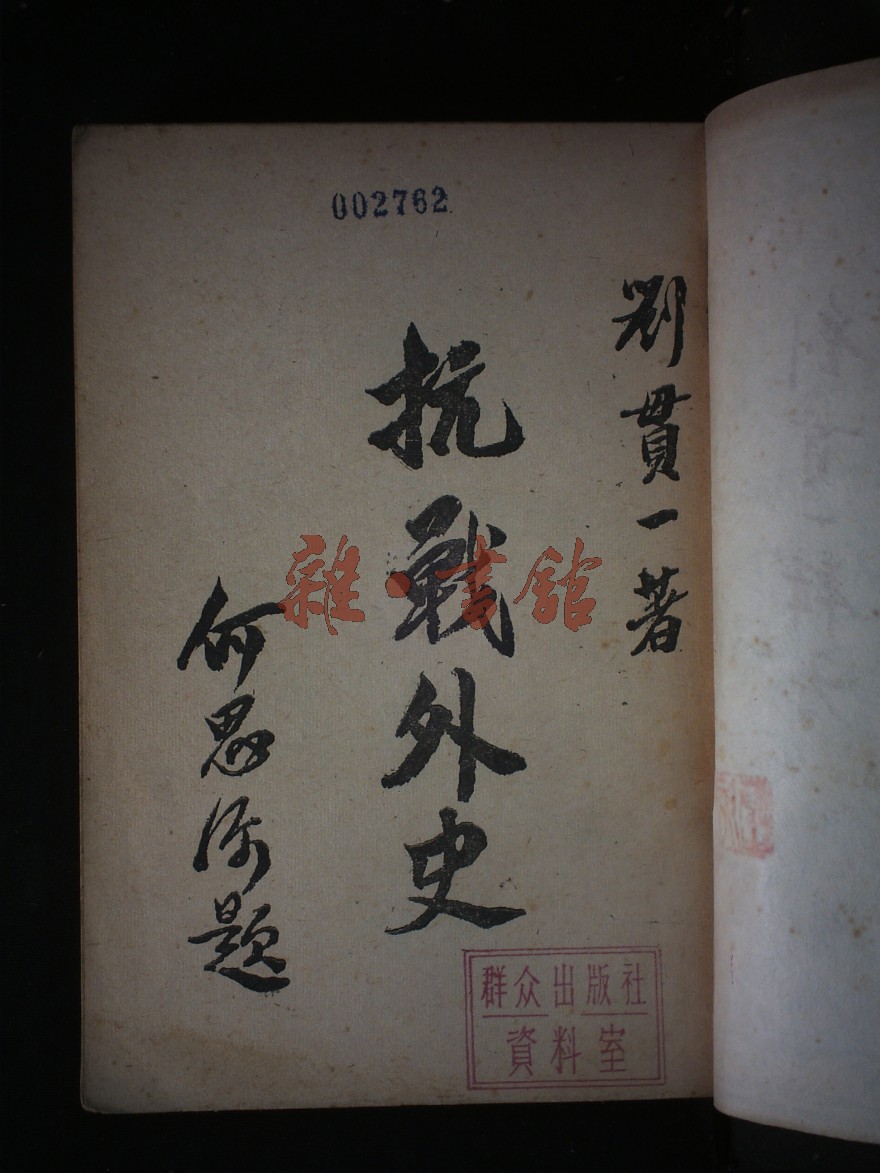 002762
劉貫一著
抗戰外史
何思源題
雜·書館
群众出版社
資料室